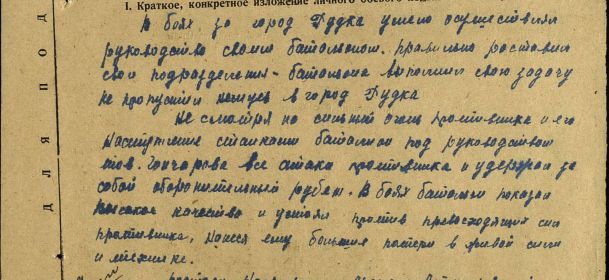 I. Краткое, конкретное изложение личного боевого
В боях за город Дудка умело осуществлял
руководство своим батальоном. Правильно расставил
свои подразделения - батальона выполнил свою задачу
не пропустил немцев в город Дудка
Не смотря на сильный огонь противника и его
наступление с танками батальон под руководством
тов. Гончарова все атаки противника и удержал за
собой оборонительный рубеж. В боях батальон показал
высокое качество и устоял против превосходящих сил
противника, нанеся ему большие потери в живой силе
и технике.
ДЛЯ ПОД